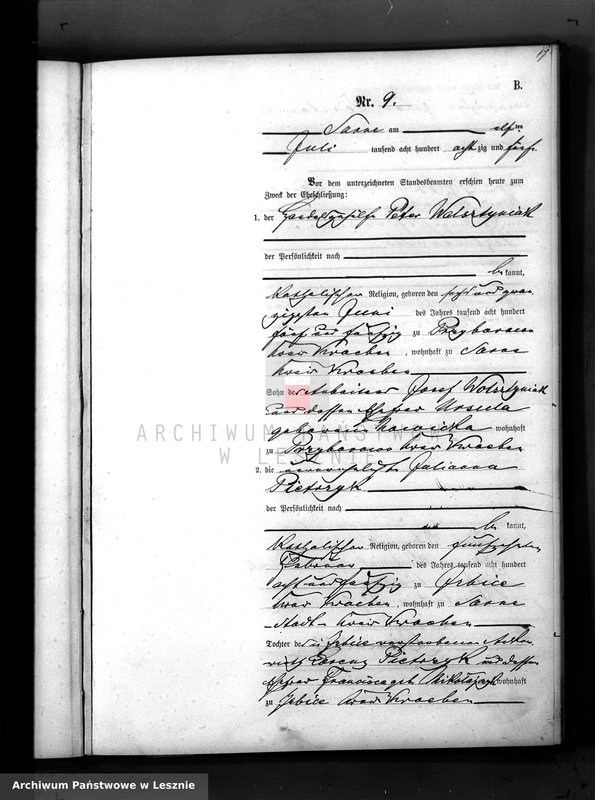 17
B.
Nr. 9.
Sarne am elften
Juli tausend acht hundert achtzig und fünf.
Vor dem unterzeichneten Standesbeamten erschien heute zum
Zweck der Eheschließung:
1. der Peter Wolsztyniak
der Persönlichkeit nach
bekannt,
katholischer Religion, geboren den sechs und zwan
zigsten Juni des Jahres tausend acht hundert
fünf und fünfzig zu Przyborowo
Kreis Kroeben, wohnhaft zu Sarne
Kreis Kroeben
Sohn des Arbeiters Josef Wolsztyniak
und dessen Ehefrau Ursula
geborenen Nawicka wohnhaft
zu Przyborowo Kreis Kroeben
2. die unverehelichte Julianna
Pietrzyk
der Persönlichkeit nach
bekannt,
katholischer Religion, geboren den fünfzehnten
Februar des Jahres tausend acht hundert
acht und fünfzig zu Izbice
Kreis Kroeben, wohnhaft zu Sarne
Stadt Kreis Kroeben
Tochter des zu Izbice verstorbenen Acker
wirth Lorenz Pietrzyk und dessen
Ehefrau Francisca geb. Mikołajczyk wohnhaft
zu Izbice Kreis Kroeben
ARCHIWUM PAŃSTWOWE
W LESZNIE
Archiwum Państwowe w Lesznie